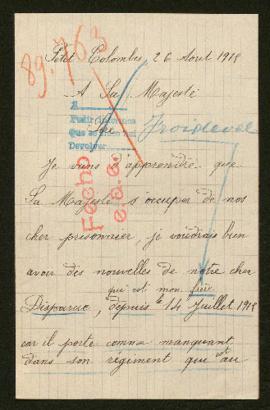 Petit Colombes, 26 Aout 1918
89.763
A Sa Majesté
A
Pedir informes
Devolver
Froideval
Fecho
Je viens d'apprendre que
Sa Majesté s'occupe de nos
cher prisonnier, je voudrais bien
avoir des nouvelles de notre cher
qui est mon frère
Disparue, depuis le 14 Juillet 1918
car il porte comme manquant
dans son régiment qui au